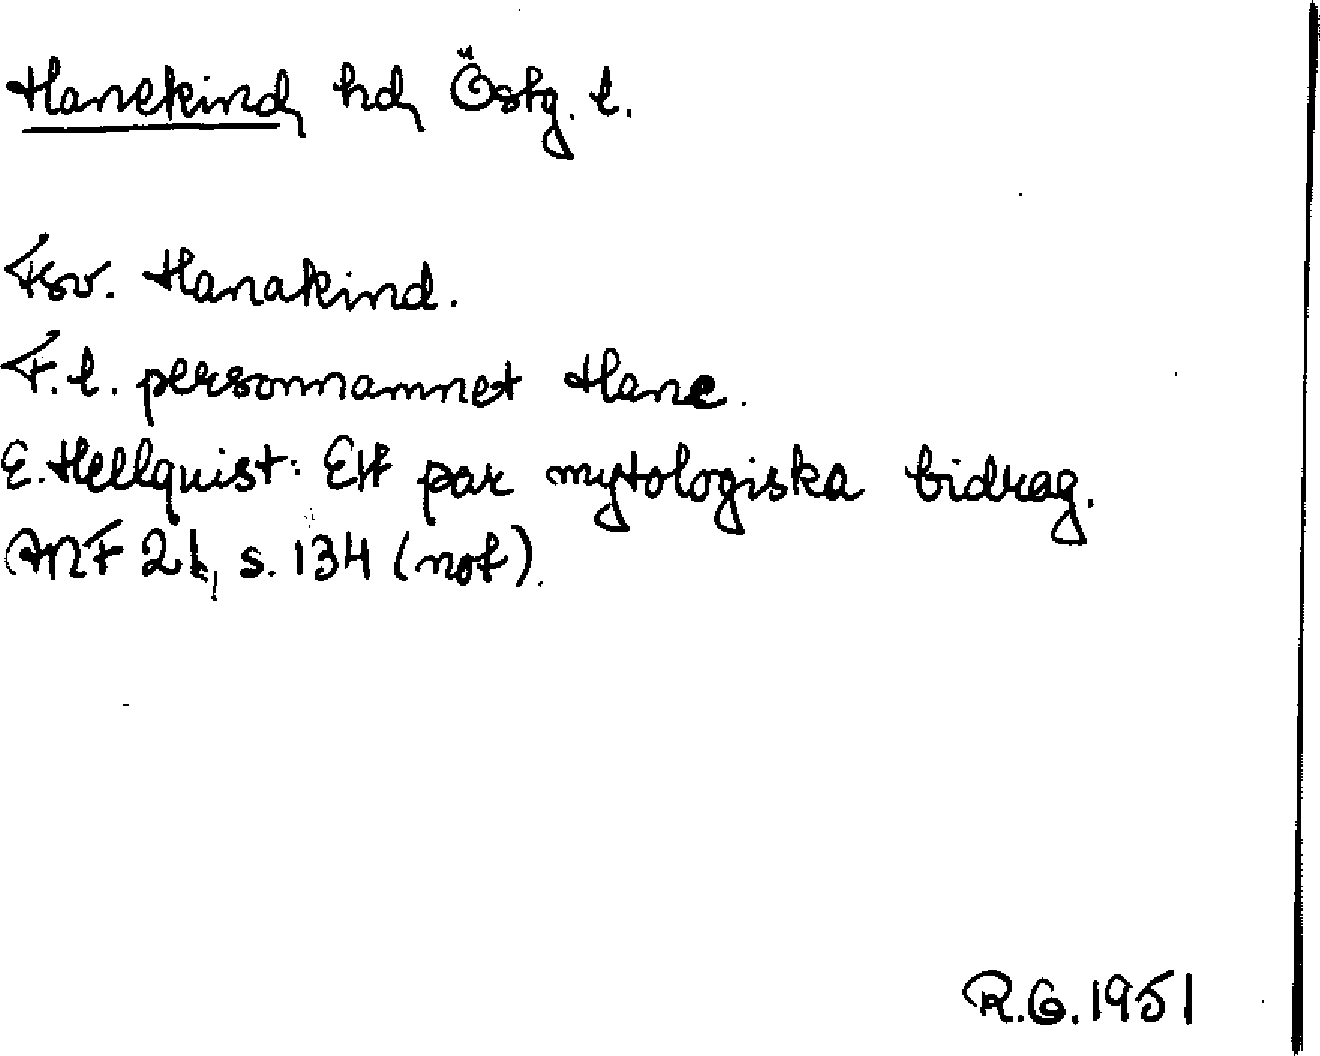 Hanekind, hd, Östg. l.
Fsv. Hanakind.
F. l. personnamnet Hane.
E. Hellquist: Ett par mytologiska bidrag.
ANF 21, s. 134 (not).
R.G. 1951